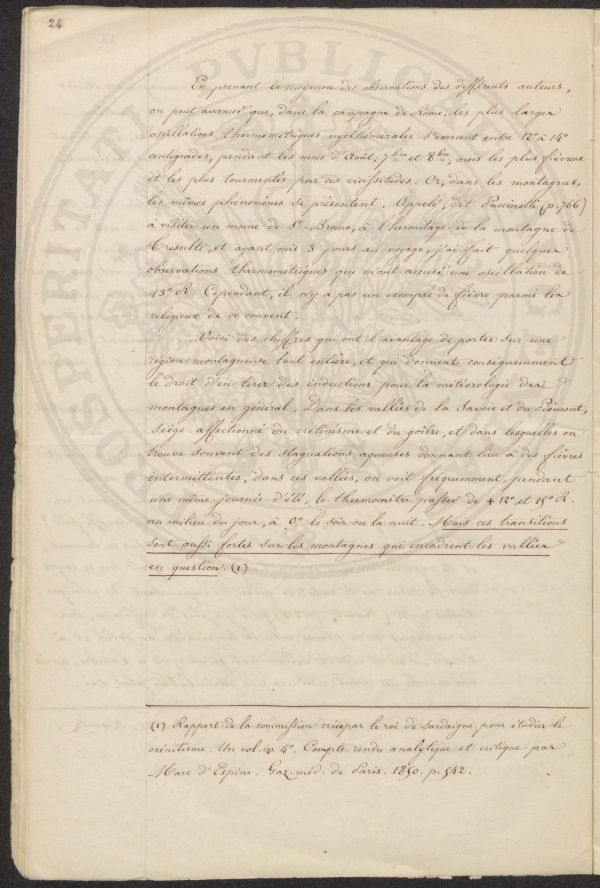 24
En prenant la moyenne des observations des différents auteurs,
on peut avancer que, dans la campagne de Rome, les plus larges
oscillations thermométriques nycthémérales s'exercent entre 12° à 14°
centigrades, pendant les mois d'Août, 7bre et 8bre, mois les plus fiévreux
et les plus tourmentés par ces vicissitudes. Or, dans les montagnes,
les mêmes phénomènes se présentent. Appelé, dit Puccinotti (p. 766)
à visiter un moine de St-Bruno, à l'hermitage de la montagne de
Trisulti, et ayant mis 3 jours au voyage, j'ai fait quelques
observations thermométriques qui m'ont accusé une oscillation de
13° R. Cependant, il n'y a pas un exemple de fièvre parmi les
religieux de ce couvent.
Voici des chiffres qui ont l'avantage de porter sur une
région montagneuse tout entière, et qui donnent conséquemment
le droit d'en tirer des inductions pour la météorologie des
montagnes en général. Dans les vallées de la Savoie et du Piémont,
siége affectionné du crétinisme et du goître, et dans lesquelles on
trouve souvent des stagnations aqueuses donnant lieu à des fièvres
intermittentes, dans ces vallées, on voit fréquemment, pendant
une même journée d'été, le thermomètre passer de + 12° et 15° R.
au milieu du jour, à 0° le soir ou la nuit. Mais ces transitions
sont aussi fortes sur les montagnes qui encadrent les vallées
en question. (1)
(1) Rapport de la commission créée par le roi de Sardaigne pour étudier le
crénitisme. Un vol. in 4°. Compte rendu analytique et critique par
Marc d'Espine. Gaz. méd. de Paris. 1850. p. 542.
PUBLICA
POSTERITATI